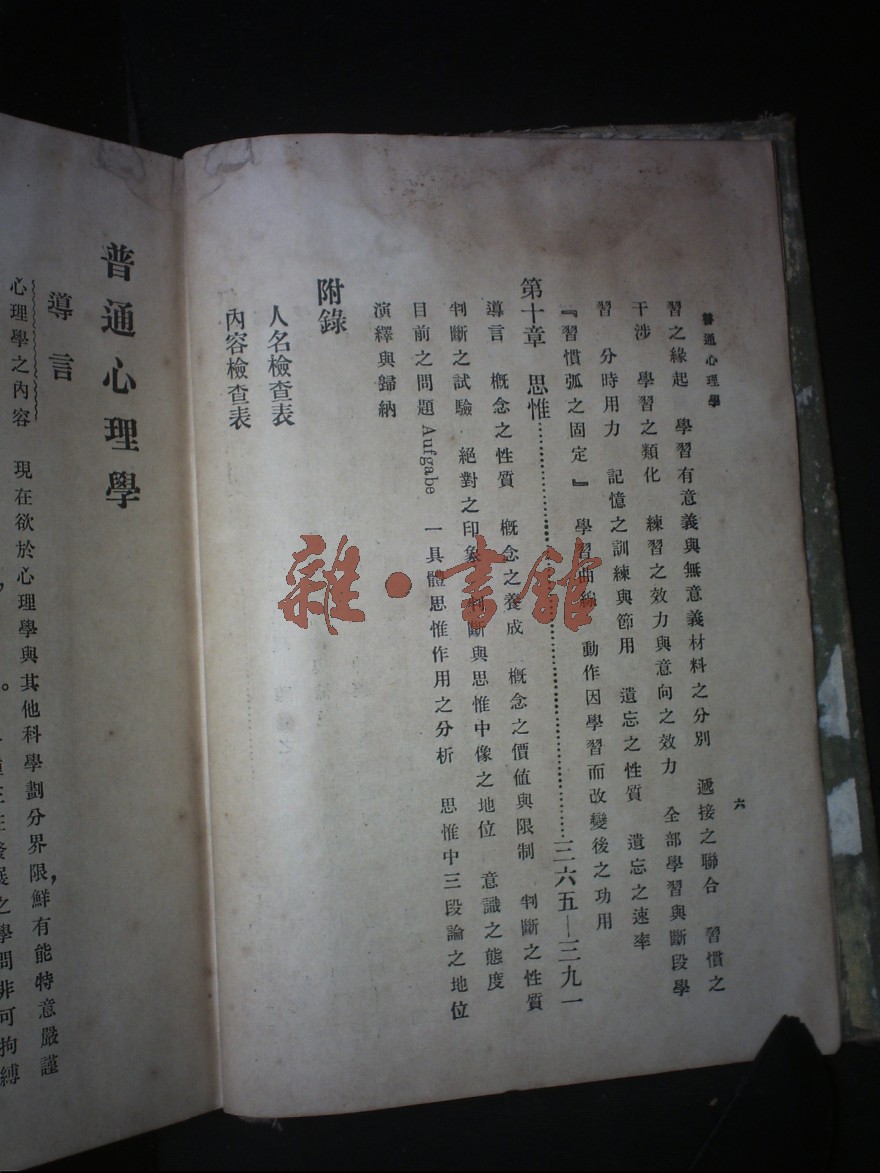 普通心理學
六
習之緣起 學習有意義與無意義材料之分別 遞接之聯合 習慣之
干涉 學習之類化 練習之效力與意向之效力 全部學習與斷段學
習 分時用力 記憶之訓練與節用 遺忘之性質 遺忘之速率
『習慣弧之固定』 學習曲線 動作因學習而改變後之功用
第十章 思惟……三六五—三九一
導言 概念之性質 概念之養成 概念之價值與限制 判斷之性質
判斷之試驗 絕對之印象 判斷與思惟中像之地位 意識之態度
目前之問題 Aufgabe 一具體思惟作用之分析 思惟中三段論之地位
演繹與歸納
附錄
人名檢查表
內容檢查表
雜·書館
普通心理學
導言
心理學之內容 現在欲於心理學與其他科學劃分界限，鮮有能特意嚴謹
發展之學問非可拘縛